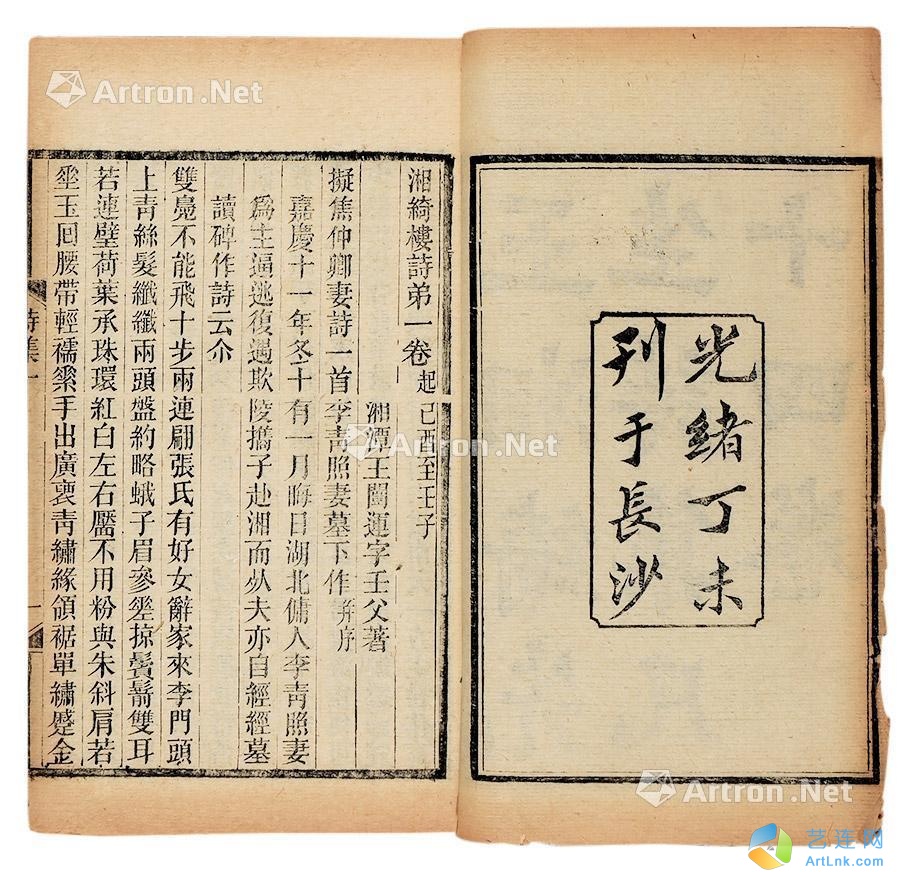 光緒丁未
刊于長沙
湘綺樓詩弟一卷 起己酉至壬子
湘潭王闓運字壬父著
擬焦仲卿妻詩一首李青照妻墓下作 并序
嘉慶十一年冬十有一月晦日湖北傭人李青照妻
為主逼逃復遇欺陵攜子赴湘而𣦸夫亦自經經墓
讀碑作詩云尒
雙鳧不能飛十步兩連翩張氏有好女辭家來李門頭
上青絲髮纖纖兩頭盤約略蛾子眉參𢒰掠鬢鬋雙耳
若連璧荷葉承珠環紅白左右靨不用粉與朱斜肩若
玉回腰帶輕襦手出廣袖青繡緣領裾單繡躄金
詩集一
Artron.Net
Artron.Net
Artron.Net
艺连网
ArtLnk.com